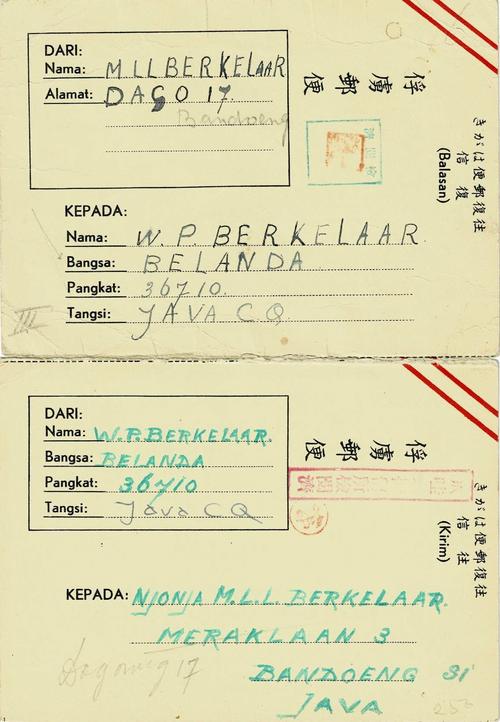 DARI:
Nama: M L L BERKELAAR
Alamat: DAGO 17.
Bandoeng
俘虜郵便
往復郵便はがき
復信
(Balasan)
KEPADA:
Nama: W. P. BERKELAAR
Bangsa: BELANDA
Pangkat: 36710.
Tangsi: JAVA C Q
III
DARI:
Nama: W.P. BERKELAAR.
Bangsa: BELANDA
Pangkat: 36710
Tangsi: Java C Q
俘虜郵便
往復郵便はがき
往信
(Kirim)
KEPADA: NJONJA M.L.L. BERKELAAR.
MERAKLAAN 3
BANDOENG
JAVA
17